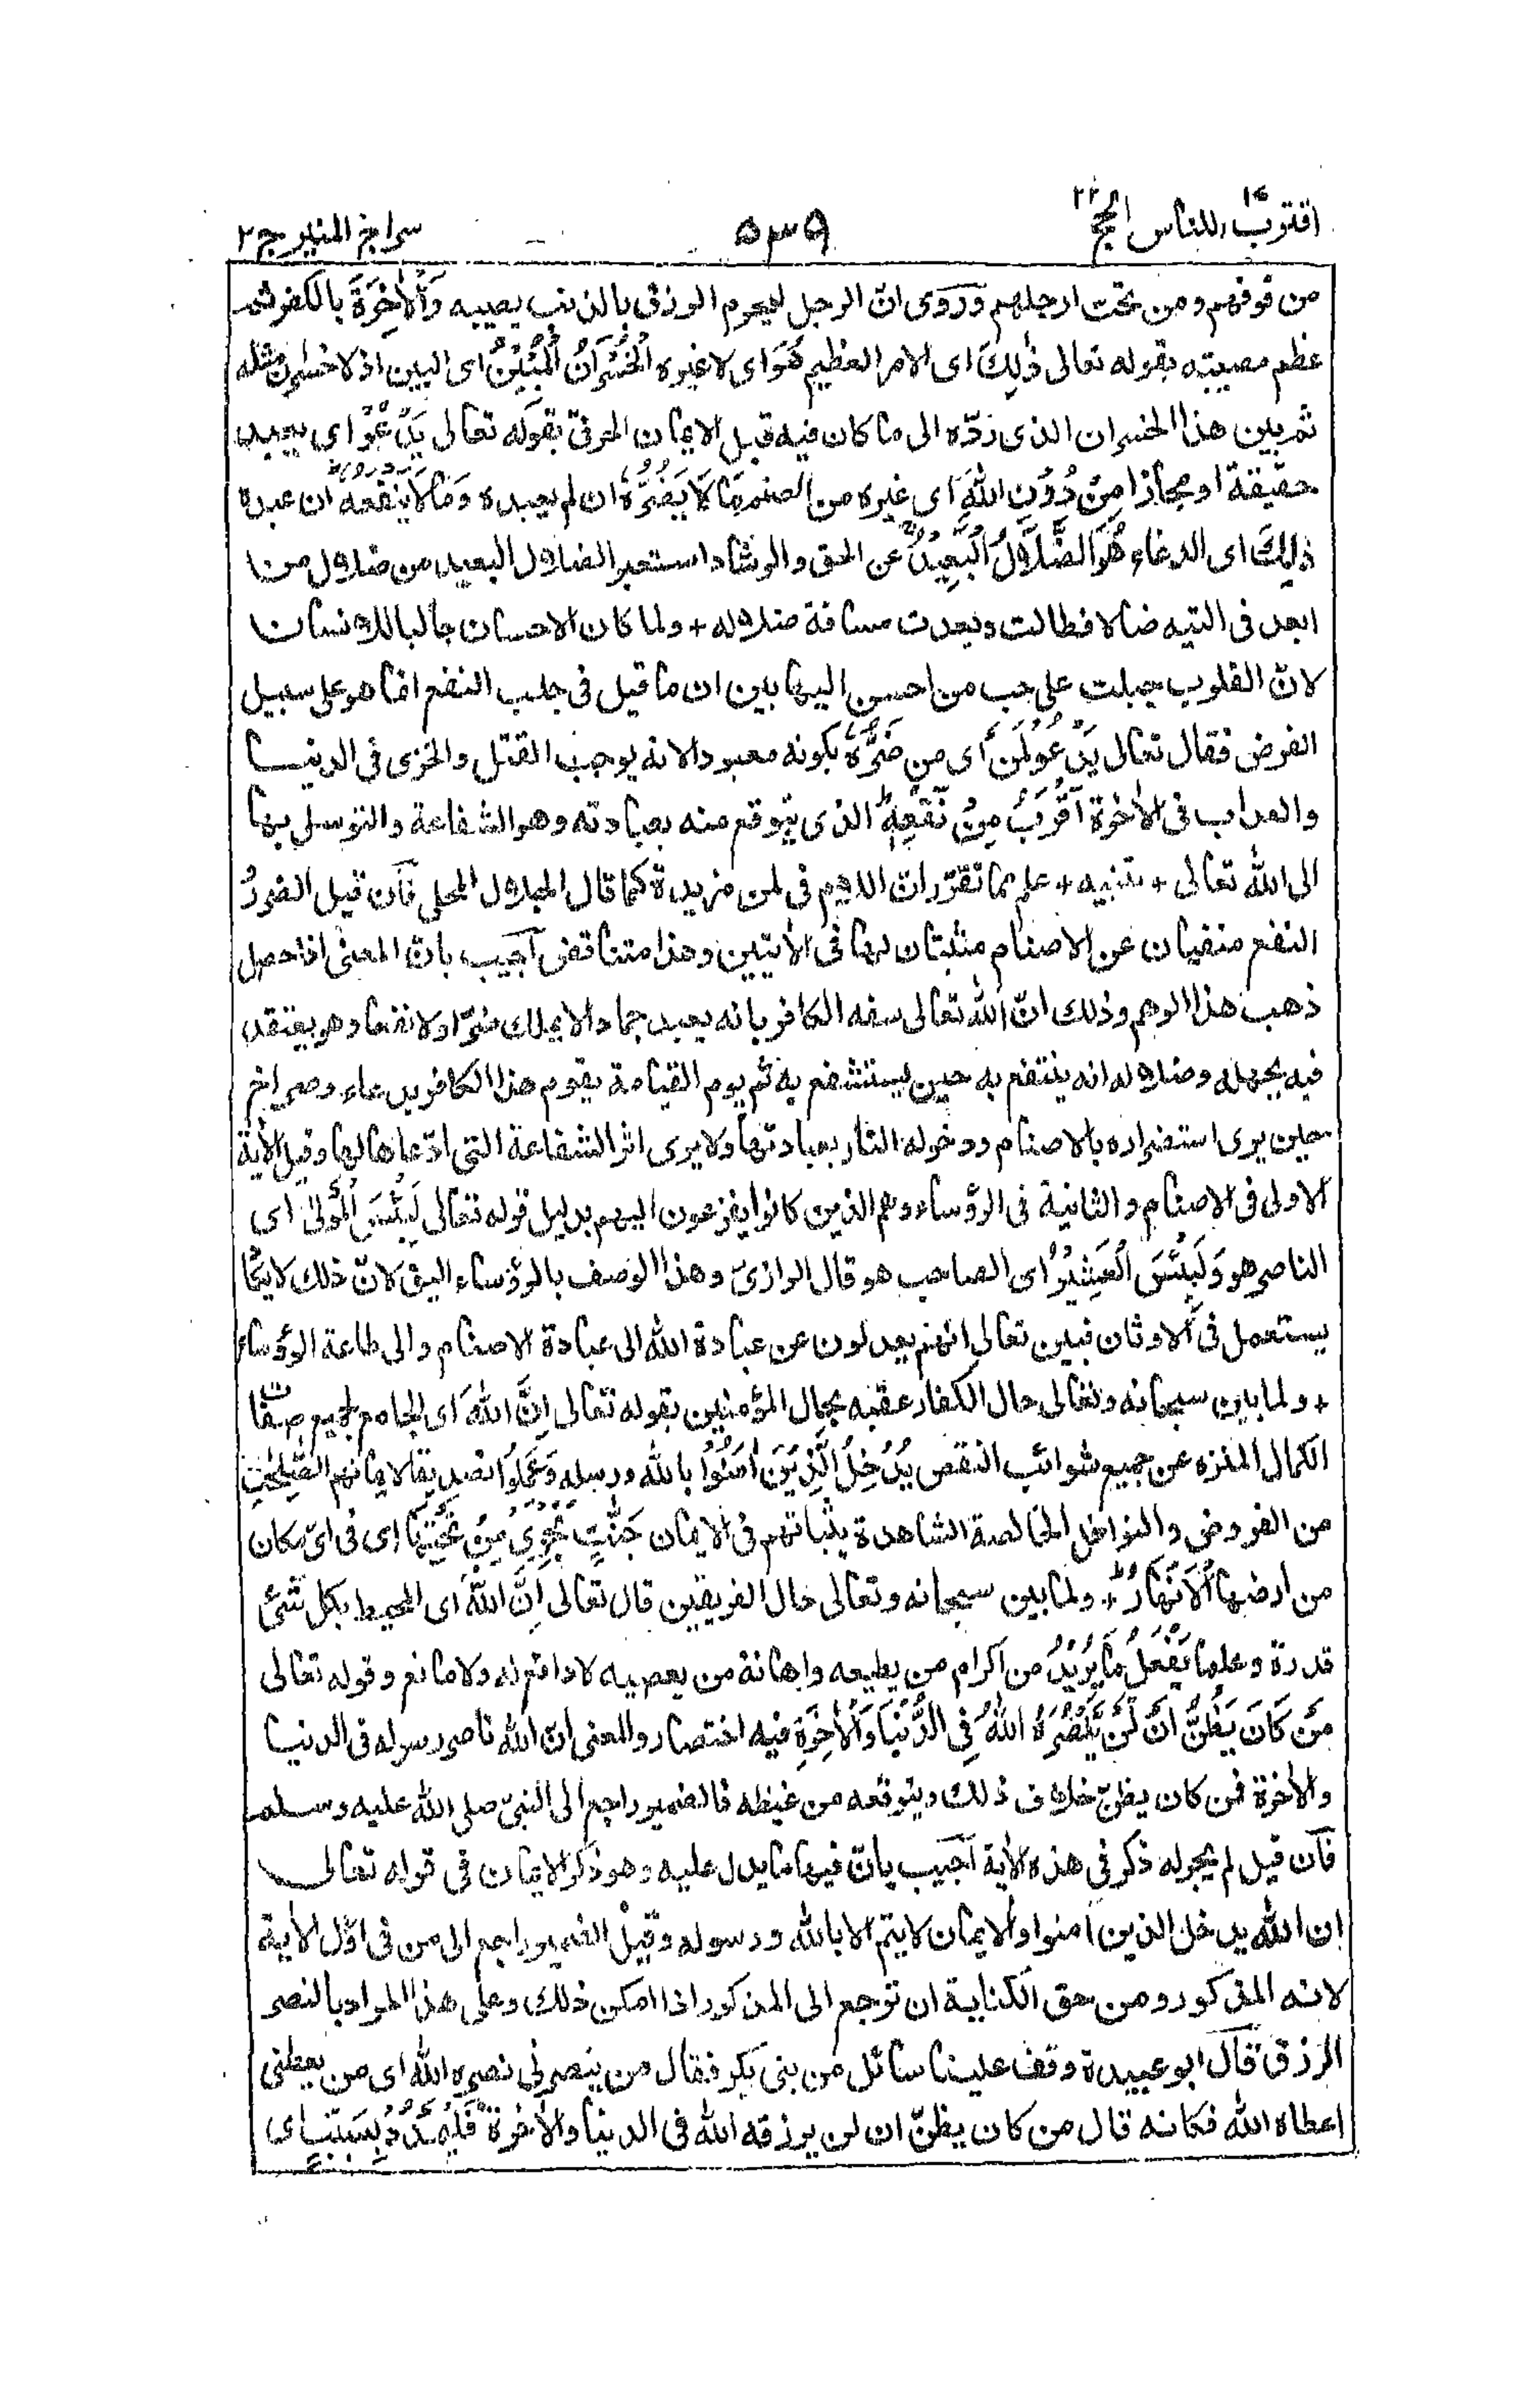 اقترب للناس ١٧ الحج ٢٢
٥٣٩
سراج المنير ج ٢
من فوقهم ومن تحت ارجلهم وروى ان الرجل ليحرم الرزق بالذنب يصيبه وَالْاٰخِرَةَ بالكفر ثم
عظم مصيبته بقوله تعالى ذٰلِكَ اى الامر العظيم هُوَ اى لا غيره الْخُسْرَانُ الْمُبِيْنُ اى البين اذ لا خسران مثله
ثم بين هذا الخسران الذى ردّه الى ما كان فيه قبل الايمان الحرفىّ بقوله تعالى يَدْعُوْا اى يعبد
حقيقة او مجازا مِنْ دُوْنِ اللّٰهِ اى غيره من الصنم مَا لَا يَضُرُّهٗ ان لم يعبده وَمَا لَا يَنْفَعُهٗ ان عبده
ذٰلِكَ اى الدعاء هُوَ الضَّلٰلُ الْبَعِيْدُ عن الحق والرشاد استعير الضلال البعيد من ضلال من
ابعد فى التيه ضالا فطالت وبعدت مسافة ضلاله + ولما كان الاحسان جالبا للانسان
لانّ القلوب جبلت على حب من احسن اليها بين ان ما قيل فى جلب النفع انما هو على سبيل
الفرض فقال تعالى يَدْعُوْا لَمَنْ اى من ضَرُّهٗ بكونه معبودا لانه يوجب القتل والخزى فى الدنيا
والعذاب فى الاٰخرة اَقْرَبُ مِنْ نَّفْعِهٖ الذى يتوقع منه بعبادته وهو الشفاعة والتوسل بها
الى الله تعالى + تنبيه + علم مما تقرّر ان اللام فى لمن مزيدة كما قال الجلال المحلى فان قيل الضرر
النفع منفيان عن الاصنام مثبتان لها فى الاٰيتين وهذا متناقض اجيب بانّ المعنى اذا حصل
ذهب هذا الوهم وذلك انّ الله تعالى سفه الكافر بانه يعبد جمادا لا يملك ضرّا ولا نفعا وهو يعتقد
فيه بجهله وضلاله انه ينتفع به حين يستشفع به ثم يوم القيامة يقوم هذا الكافر بدعاء وصراخ
حين يرى استضراره بالاصنام ودخوله النار بعبادتها ولا يرى اثر الشفاعة التى ادّعاها لها وقيل الاٰية
الاولى فى الاصنام والثانية فى الرؤساء وهم الذين كانوا يفزعون اليهم بدليل قوله تعالى لَبِئْسَ الْمَوْلٰى اى
الناصر هو وَلَبِئْسَ الْعَشِيْرُ اى الصاحب هو قال الرازىّ وهذا الوصف بالرؤساء اليق لانّ ذلك لا يكاد
يستعمل فى الاوثان فبين تعالى انهم يعدلون عن عبادة الله الى عبادة الاصنام والى طاعة الرؤساء
+ ولما بين سبحانه وتعالى حال الكفار عقبه بحال المؤمنين بقوله تعالى اِنَّ اللّٰهَ اى الجامع لجميع صفات
الكمال المنزه عن جميع شوائب النقص يُدْخِلُ الَّذِيْنَ اٰمَنُوْا بالله ورسله وَعَمِلُوا تصديقا لايمانهم الصّٰلِحٰتِ
من الفروض والنوافل الخالصة الشاهدة بثباتهم فى الايمان جَنّٰتٍ تَجْرِيْ مِنْ تَحْتِهَا اى فى اىّ مكان
من ارضها الْاَنْهٰرُ + ولما بين سبحانه وتعالى حال الفريقين قال تعالى اِنَّ اللّٰهَ اى المحيط بكل شئ
قدرة وعلما يَفْعَلُ مَا يُرِيْدُ من اكرام من يطيعه واهانة من يعصيه لا دافع له ولا مانع وقوله تعالى
مَنْ كَانَ يَظُنُّ اَنْ لَّنْ يَّنْصُرَهُ اللّٰهُ فِى الدُّنْيَا وَالْاٰخِرَةِ فيه اختصار والمعنى انّ الله ناصر رسوله فى الدنيا
والاٰخرة فمن كان يظنّ خلاف ذلك ويتوقعه من غيظه فالضمير راجع الى النبىّ صلى الله عليه وسلم
فان قيل لم يجر له ذكر فى هذه الاٰية اجيب بانّ فيها ما يدل عليه وهو ذكر الايمان فى قوله تعالى
ان الله يدخل الذين اٰمنوا والايمان لا يتم الا بالله ورسوله وقيل الضمير راجع الى من فى اوّل الاٰية
لانه المذكور ومن حق الكناية ان ترجع الى المذكور اذا امكن ذلك وعلى هذا المراد بالنصر
الرزق قال ابو عبيدة وقف علينا سائل من بنى بكر فقال من ينصرنى نصره الله اى من يعطنى
اعطاه الله فكانه قال من كان يظنّ ان لن يرزقه الله فى الدنيا والاٰخرة فَلْيَمْدُدْ بِسَبَبٍ اى